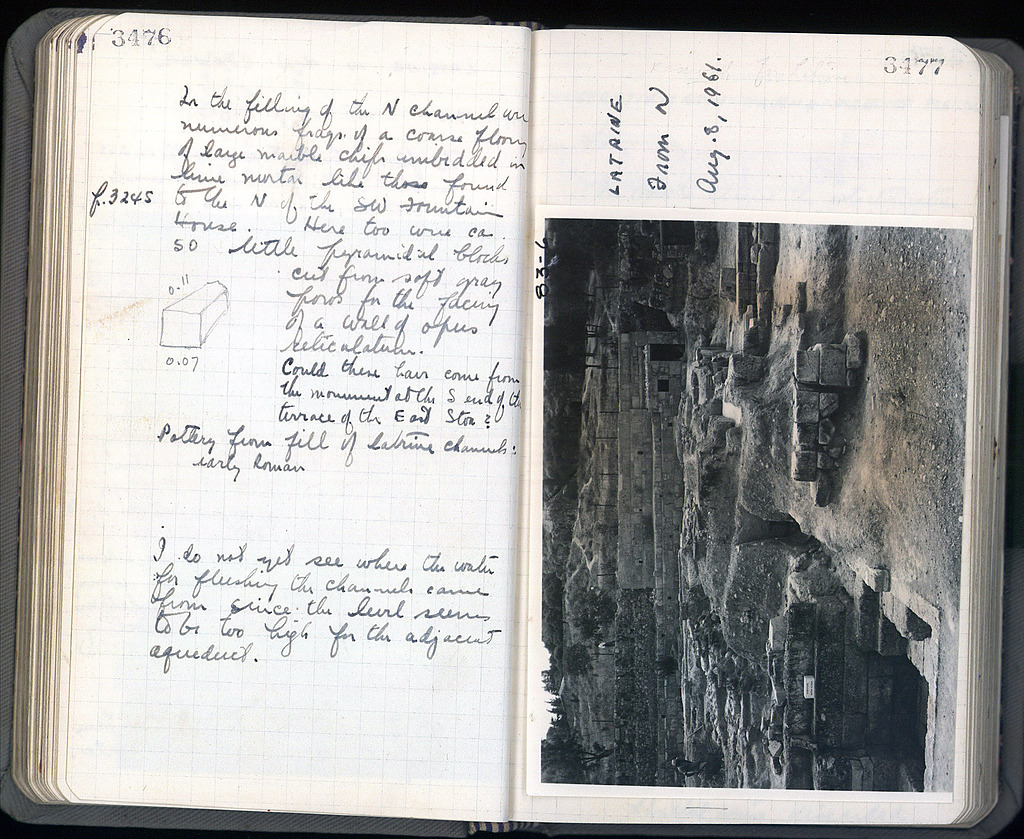 3476
In the filling of the N channel were
numerous frags. of a coarse flooring
of large marble chips imbedded in
lime mortar like those found
p. 3245 to the N of the SW Fountain
House. Here too were ca.
50 little pyramidal blocks
cut from soft gray
poros for the facing
of a wall of opus
reticulatum.
0.11
0.07
Could these have come from
the monument at the S end of the
terrace of the East Stoa?
Pottery from fill of latrine channels:
early Roman
I do not yet see where the water
for flushing the channels came
from since the level seems
to be too high for the adjacent
aqueduct.
3477
LATRINE
From N
Aug. 8, 1961.
83-6